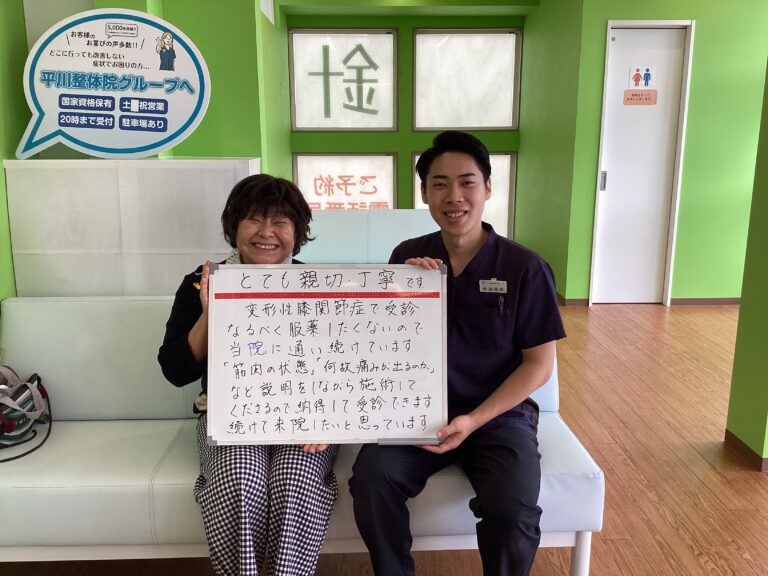 5,000件突破!!
お客様の
お喜びの声多数!!
どこに行っても改善しない
症状でお困りの方...
平川整体院グループへ
国家資格保有
土 祝営業
20時まで受付
駐車場あり
針
ご予約
電話番号
とても親切丁寧です
変形性膝関節症で受診
なるべく服薬したくないので
当院に通い続けています
「筋肉の状態」「何故痛みが出るのか」
など説明をしながら施術して
くださるので納得して受診できます
続けて来院したいと思っています